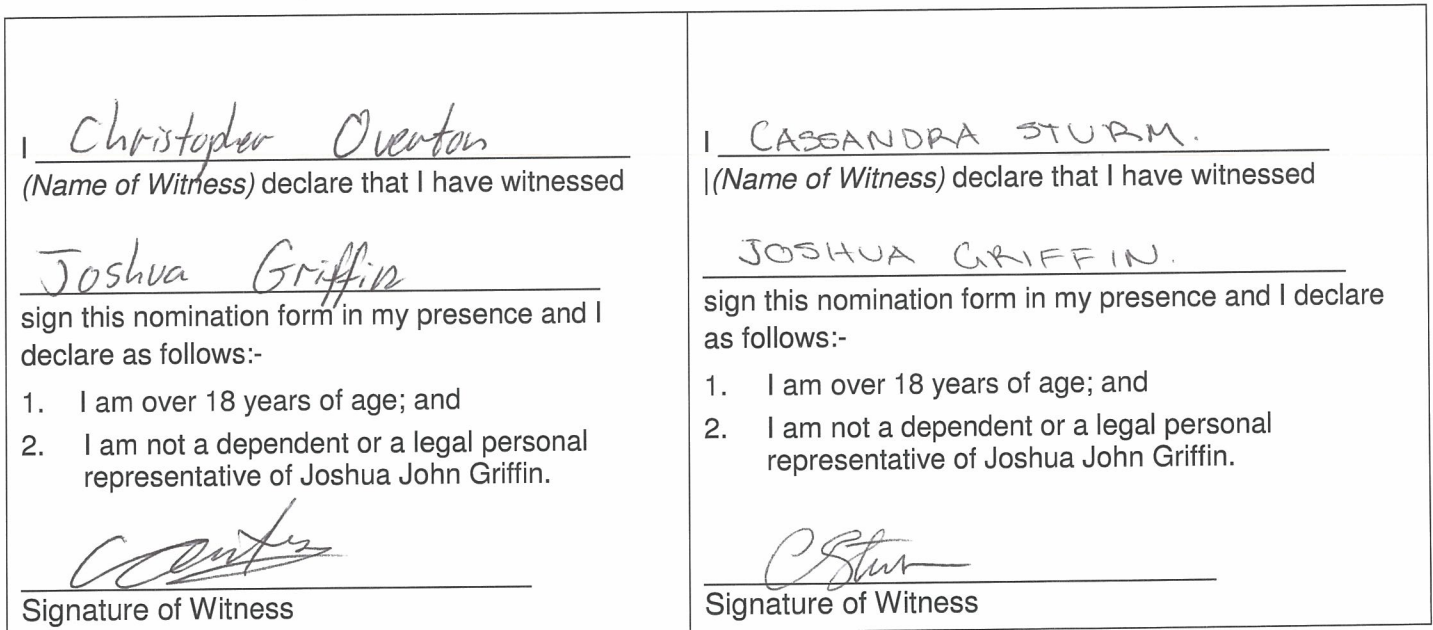 I Christopher Overton
(Name of Witness) declare that I have witnessed
Joshua Griffin
sign this nomination form in my presence and I
declare as follows:-
1. I am over 18 years of age; and
2. I am not a dependent or a legal personal
representative of Joshua John Griffin.
Signature of Witness
I CASSANDRA STURM.
|(Name of Witness) declare that I have witnessed
JOSHUA GRIFFIN.
sign this nomination form in my presence and I declare
as follows:-
1. I am over 18 years of age; and
2. I am not a dependent or a legal personal
representative of Joshua John Griffin.
CStur
Signature of Witness